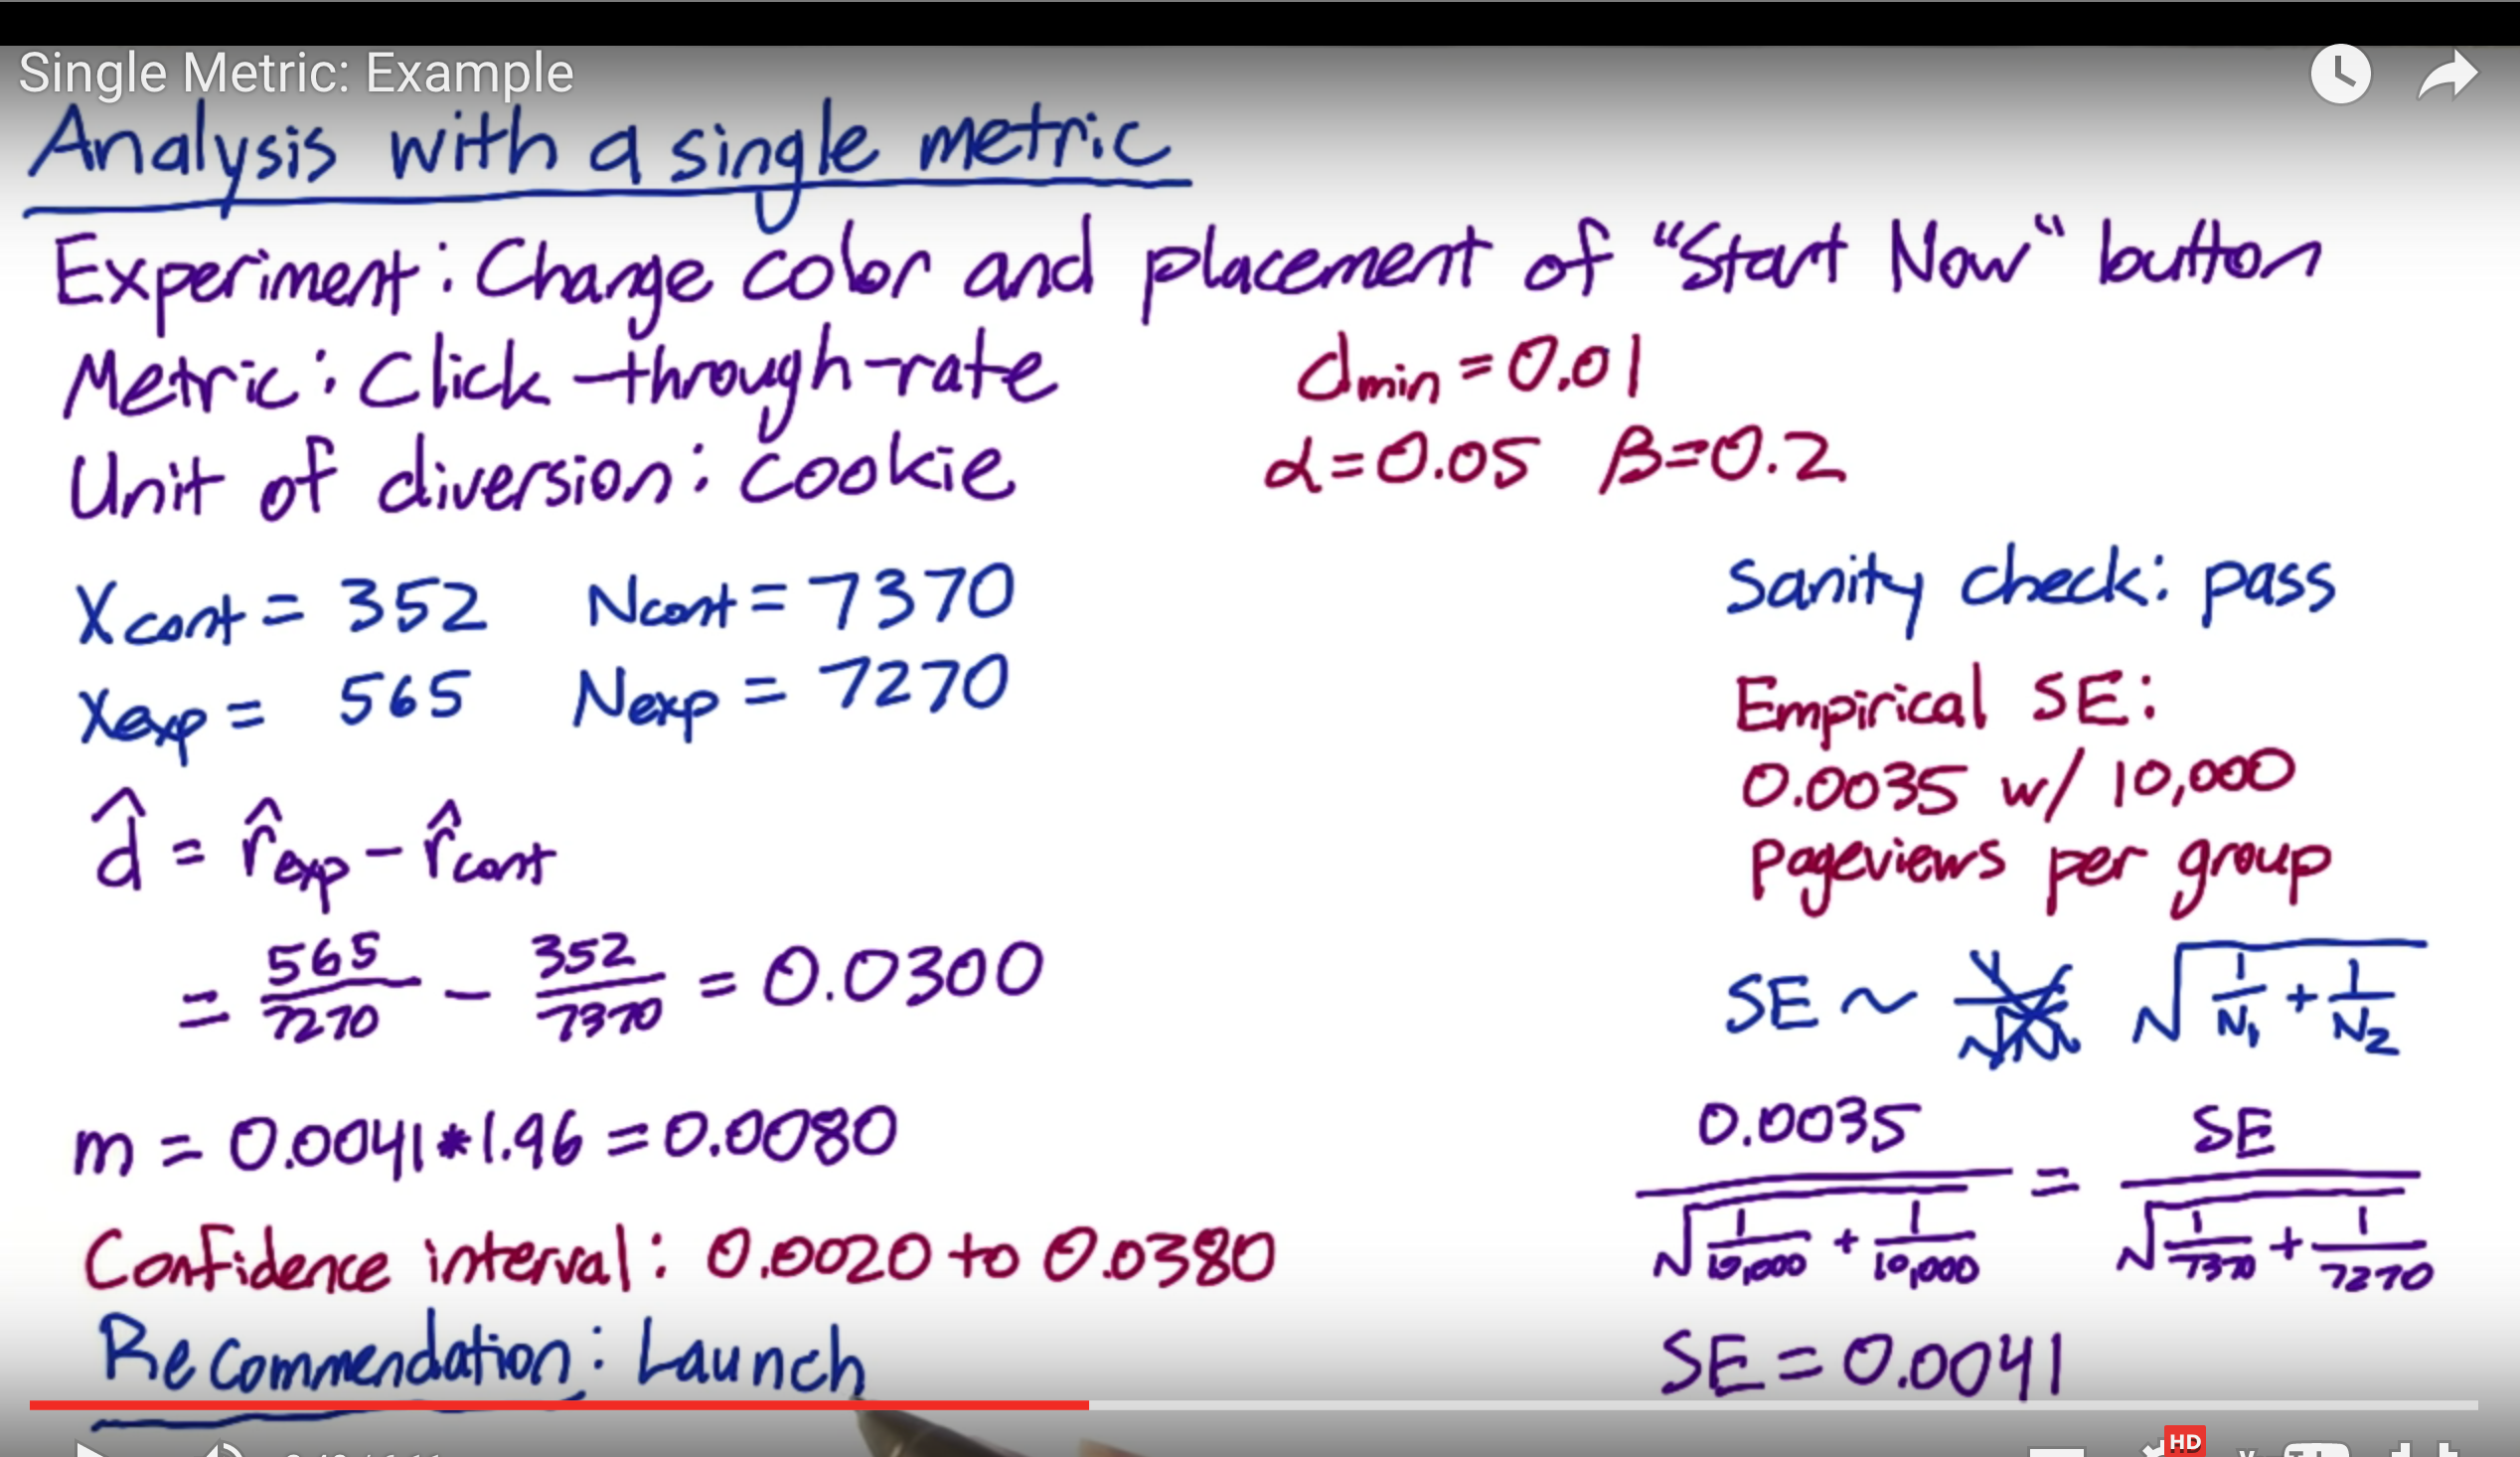 Single Metric: Example
Analysis with a single metric
Experiment: Change color and placement of "Start Now" button
Metric: Click-through-rate
Unit of diversion: cookie
dmin = 0.01
α=0.05 β=0.2
Xcont = 352 Ncont = 7370
Xexp = 565 Nexp = 7270
d̂ = r̂exp - r̂cont
= 565/7270 - 352/7370 = 0.0300
m = 0.0041 * 1.96 = 0.0080
Confidence interval: 0.0020 to 0.0380
Recommendation: Launch
Sanity check: pass
Empirical SE:
0.0035 w/ 10,000
pageviews per group
SE ~ √(1/N1 + 1/N2)
0.0035/√(1/10,000 + 1/10,000) = SE/√(1/7370 + 1/7270)
SE = 0.0041
HD